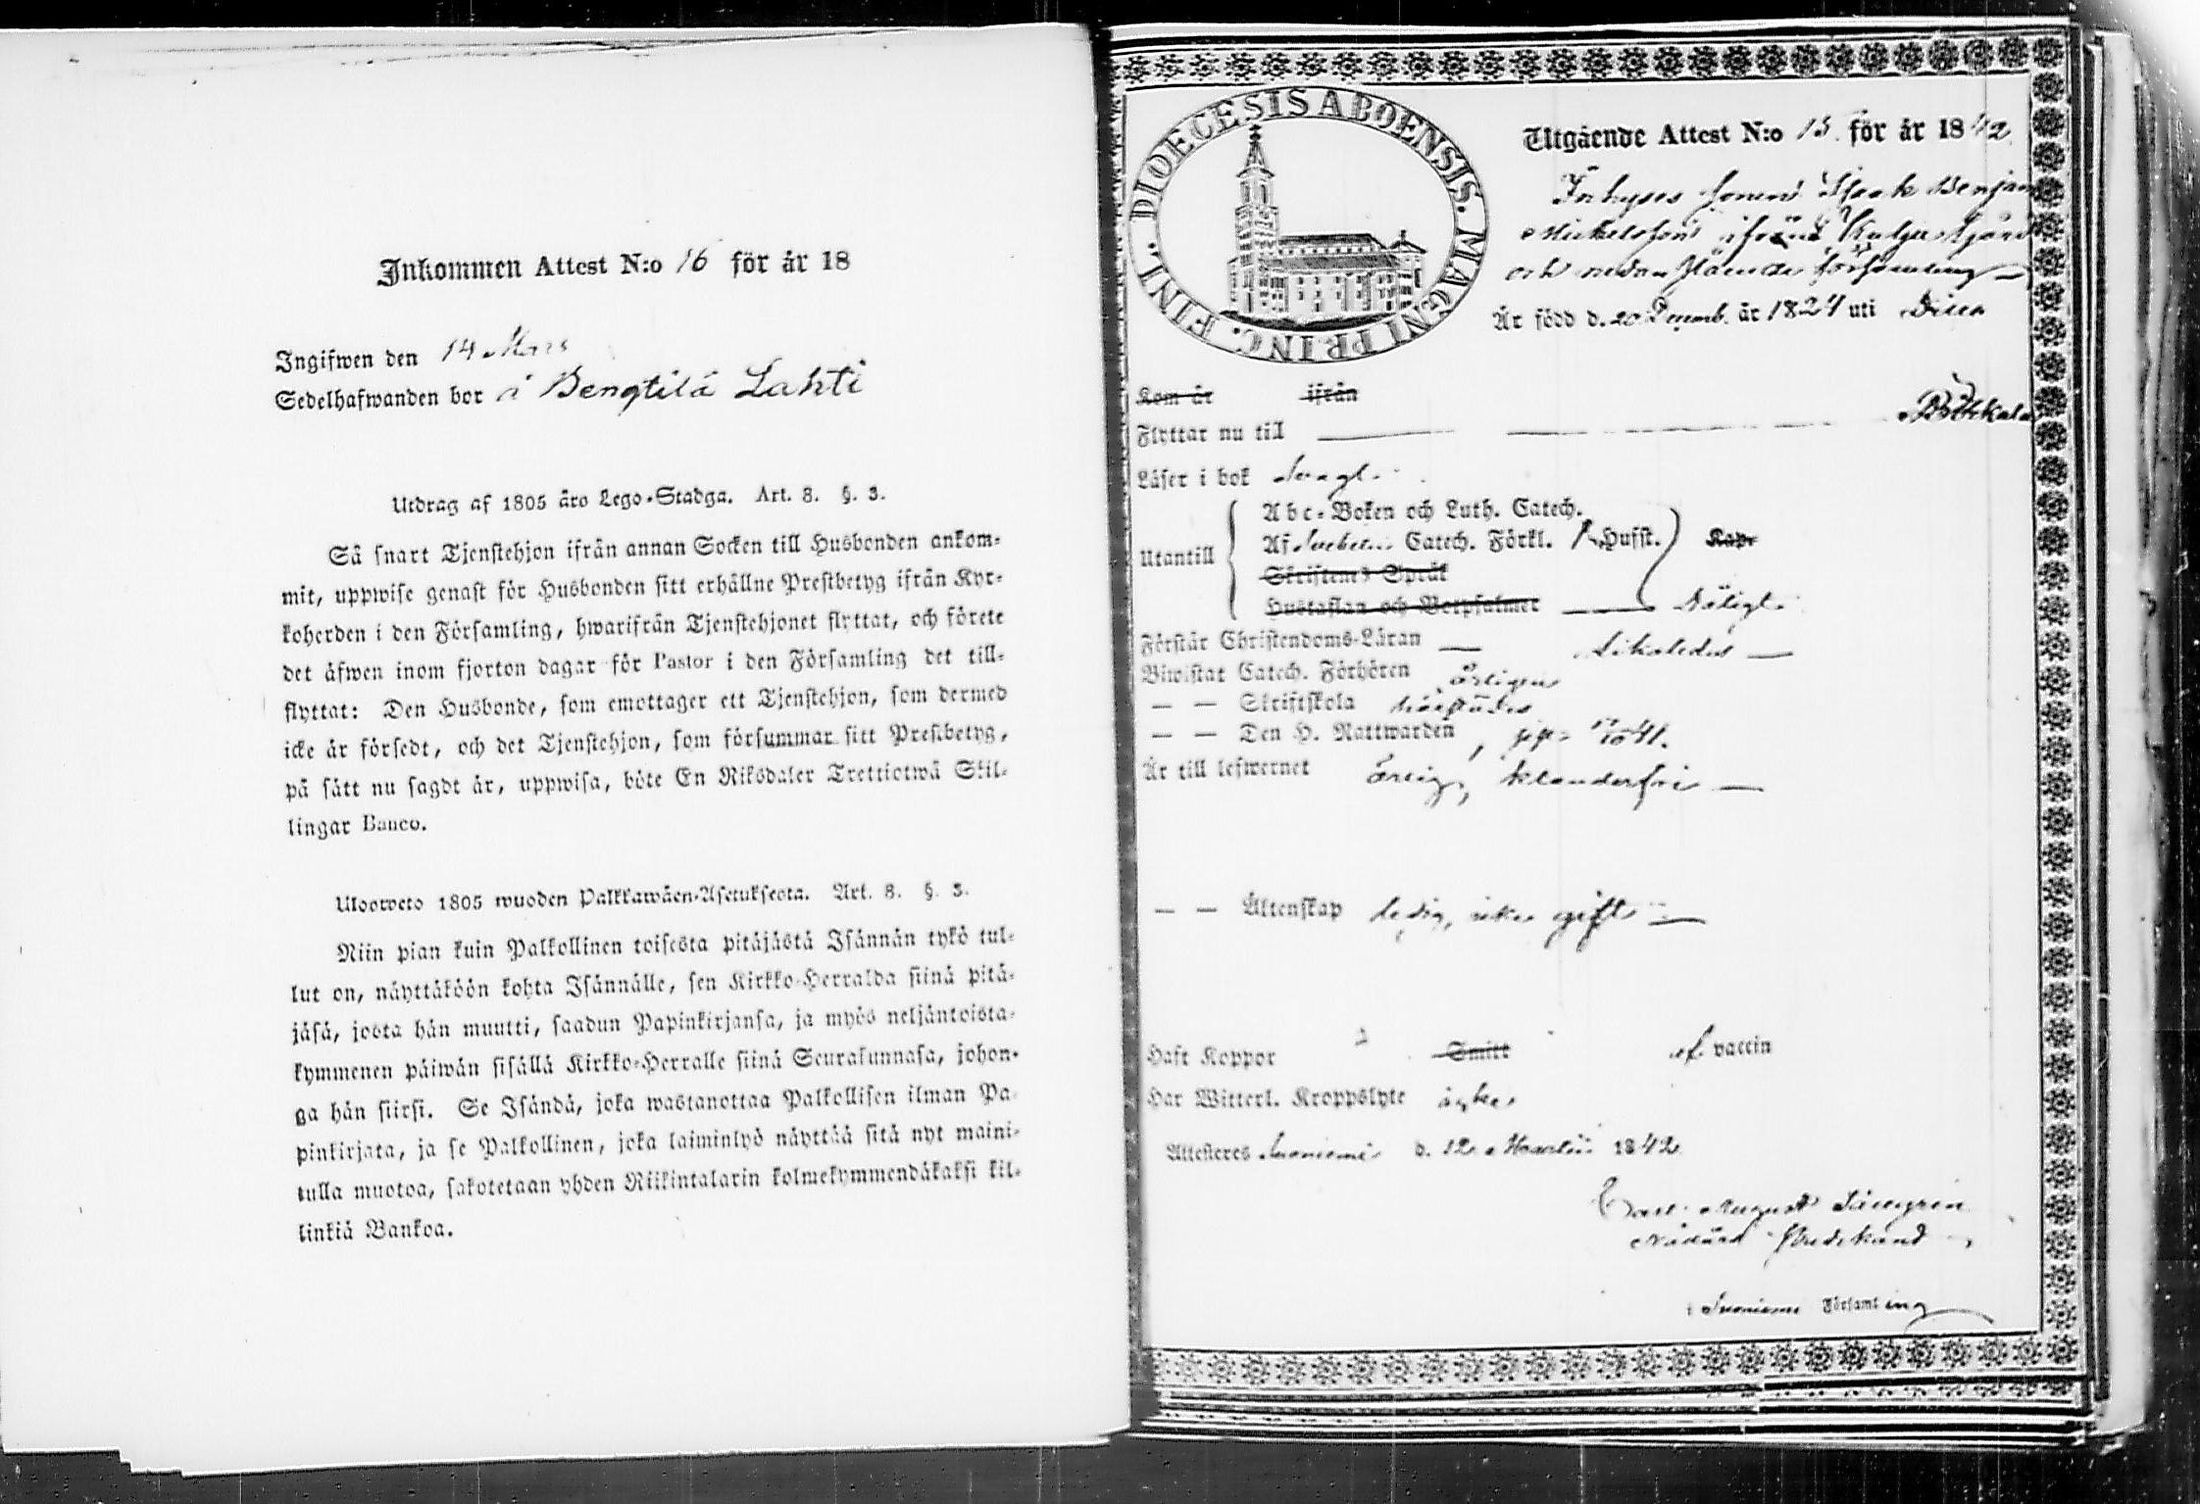 Inkommen Attest N:o 16 för år 18
Ingifwen den 14 Mars
Sedelhafwanden bor å Bengtilä Lahti
Utdrag af 1805 åro Lego-Stadga. Art. 8. §. 3.
Så snart Tjenstehjon ifrån annan Socken till Husbonden ankom-
mit, uppwise genast för Husbonden sitt erhållne Prestbetyg ifrån Kyr-
koherden i den Församling, hwarifrån Tjenstehjonet flyttat, och förete
det äfwen inom fjorton dagar för Pastor i den Församling det till-
flyttat: Den Husbonde, som emottager ett Tjenstehjon, som dermed
icke är försedt, och det Tjenstehjon, som försummar sitt Prestbetyg,
på sätt nu sagdt är, uppwisa, böte En Riksdaler Trettiotwå Skil-
lingar Banco.
Ulosweto 1805 wuoden Palkkawäen-Asetuksesta. Art. 8. §. 3.
Niin pian kuin Palkollinen toisesta pitäjästä Isännän tykö tul-
lut on, näyttäköön kohta Isännälle, sen Kirkko-Herralda siinä pitä-
jäsä, josta hän muutti, saadun Papinkirjansa, ja myös neljäntoista-
kymmenen päiwän sisällä Kirkko-Herralle siinä Seurakunnasa, johon-
ga hän siirsi. Se Isändä, joka wastanottaa Palkollisen ilman Pa-
pinkirjata, ja se Palkollinen, joka laiminlyö näyttää sitä nyt maini-
tulla muotoa, sakotetaan yhden Riikintalarin kolmekymmendäkaksi kil-
linkiä Bankoa.
DIOECESIS ABOENSIS. MAGNI PRINC. FINL.
Utgående Attest N:o 15 för år 1842
Inhyses sonen Isak Benjam
Mickelsson ifrån
och nedanstående församling
Är född d. 20 Decemb. år 1824 uti
Kom år ifrån
Flyttar nu till
Läser i bok
Utantill
Abc-Boken och Luth. Catech.
Af Svebelii Catech. Förkl. Husst. Kap.
Skriftenes Språk
Hustaflan och Botpsalmer
Förstår Christendoms-Läran
Biwistat Catech. Förhören årligen
— — Skriftskola
— — Den H. Nattwarden
Är till lefwernet ärlig, klanderfri
— — Äktenskap ledig, icke gift
Haft Koppor Smitt af vaccin
Har Witterl. Kroppslyte
Attesteras Suoniemi d. 12 Martii 1842
Carl August
i Suoniemi Församling